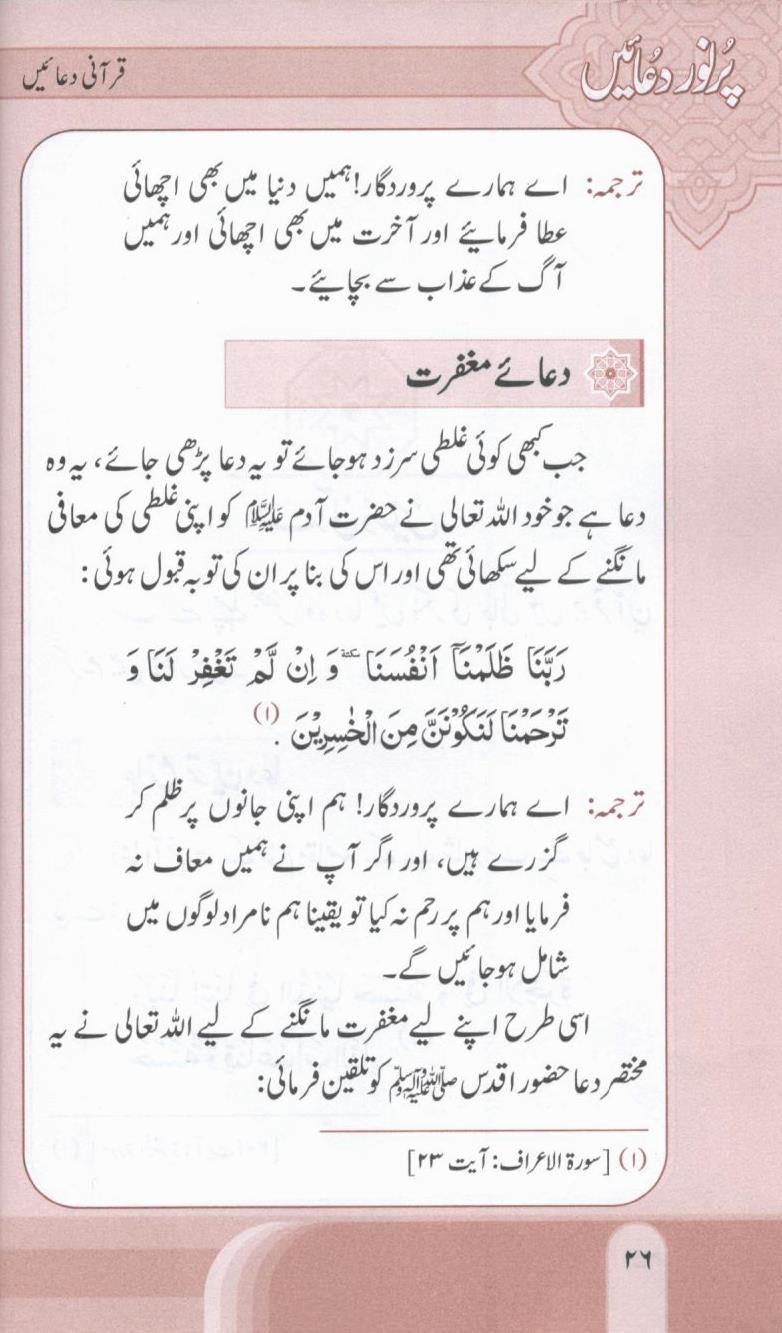 پُرنور دعائیں
قرآنی دعائیں
ترجمہ: اے ہمارے پروردگار! ہمیں دنیا میں بھی اچھائی
عطا فرمایئے اور آخرت میں بھی اچھائی اور ہمیں
آگ کے عذاب سے بچایئے۔
دعائے مغفرت
جب کبھی کوئی غلطی سرزد ہوجائے تو یہ دعا پڑھی جائے، یہ وہ
دعا ہے جو خود اللہ تعالی نے حضرت آدم علیہ السلام کو اپنی غلطی کی معافی
مانگنے کے لیے سکھائی تھی اور اس کی بنا پر ان کی توبہ قبول ہوئی:
رَبَّنَا ظَلَمْنَاۤ اَنْفُسَنَا ٚ وَ اِنْ لَّمْ تَغْفِرْ لَنَا وَ
تَرْحَمْنَا لَنَكُوْنَنَّ مِنَ الْخٰسِرِیْنَ . (۱)
ترجمہ: اے ہمارے پروردگار! ہم اپنی جانوں پر ظلم کر
گزرے ہیں، اور اگر آپ نے ہمیں معاف نہ
فرمایا اور ہم پر رحم نہ کیا تو یقینا ہم نامراد لوگوں میں
شامل ہوجائیں گے۔
اسی طرح اپنے لیے مغفرت مانگنے کے لیے اللہ تعالی نے یہ
مختصر دعا حضور اقدس صلی اللہ علیہ وسلم کو تلقین فرمائی:
(۱) [سورۃ الاعراف: آیت ۲۳]
۲۶